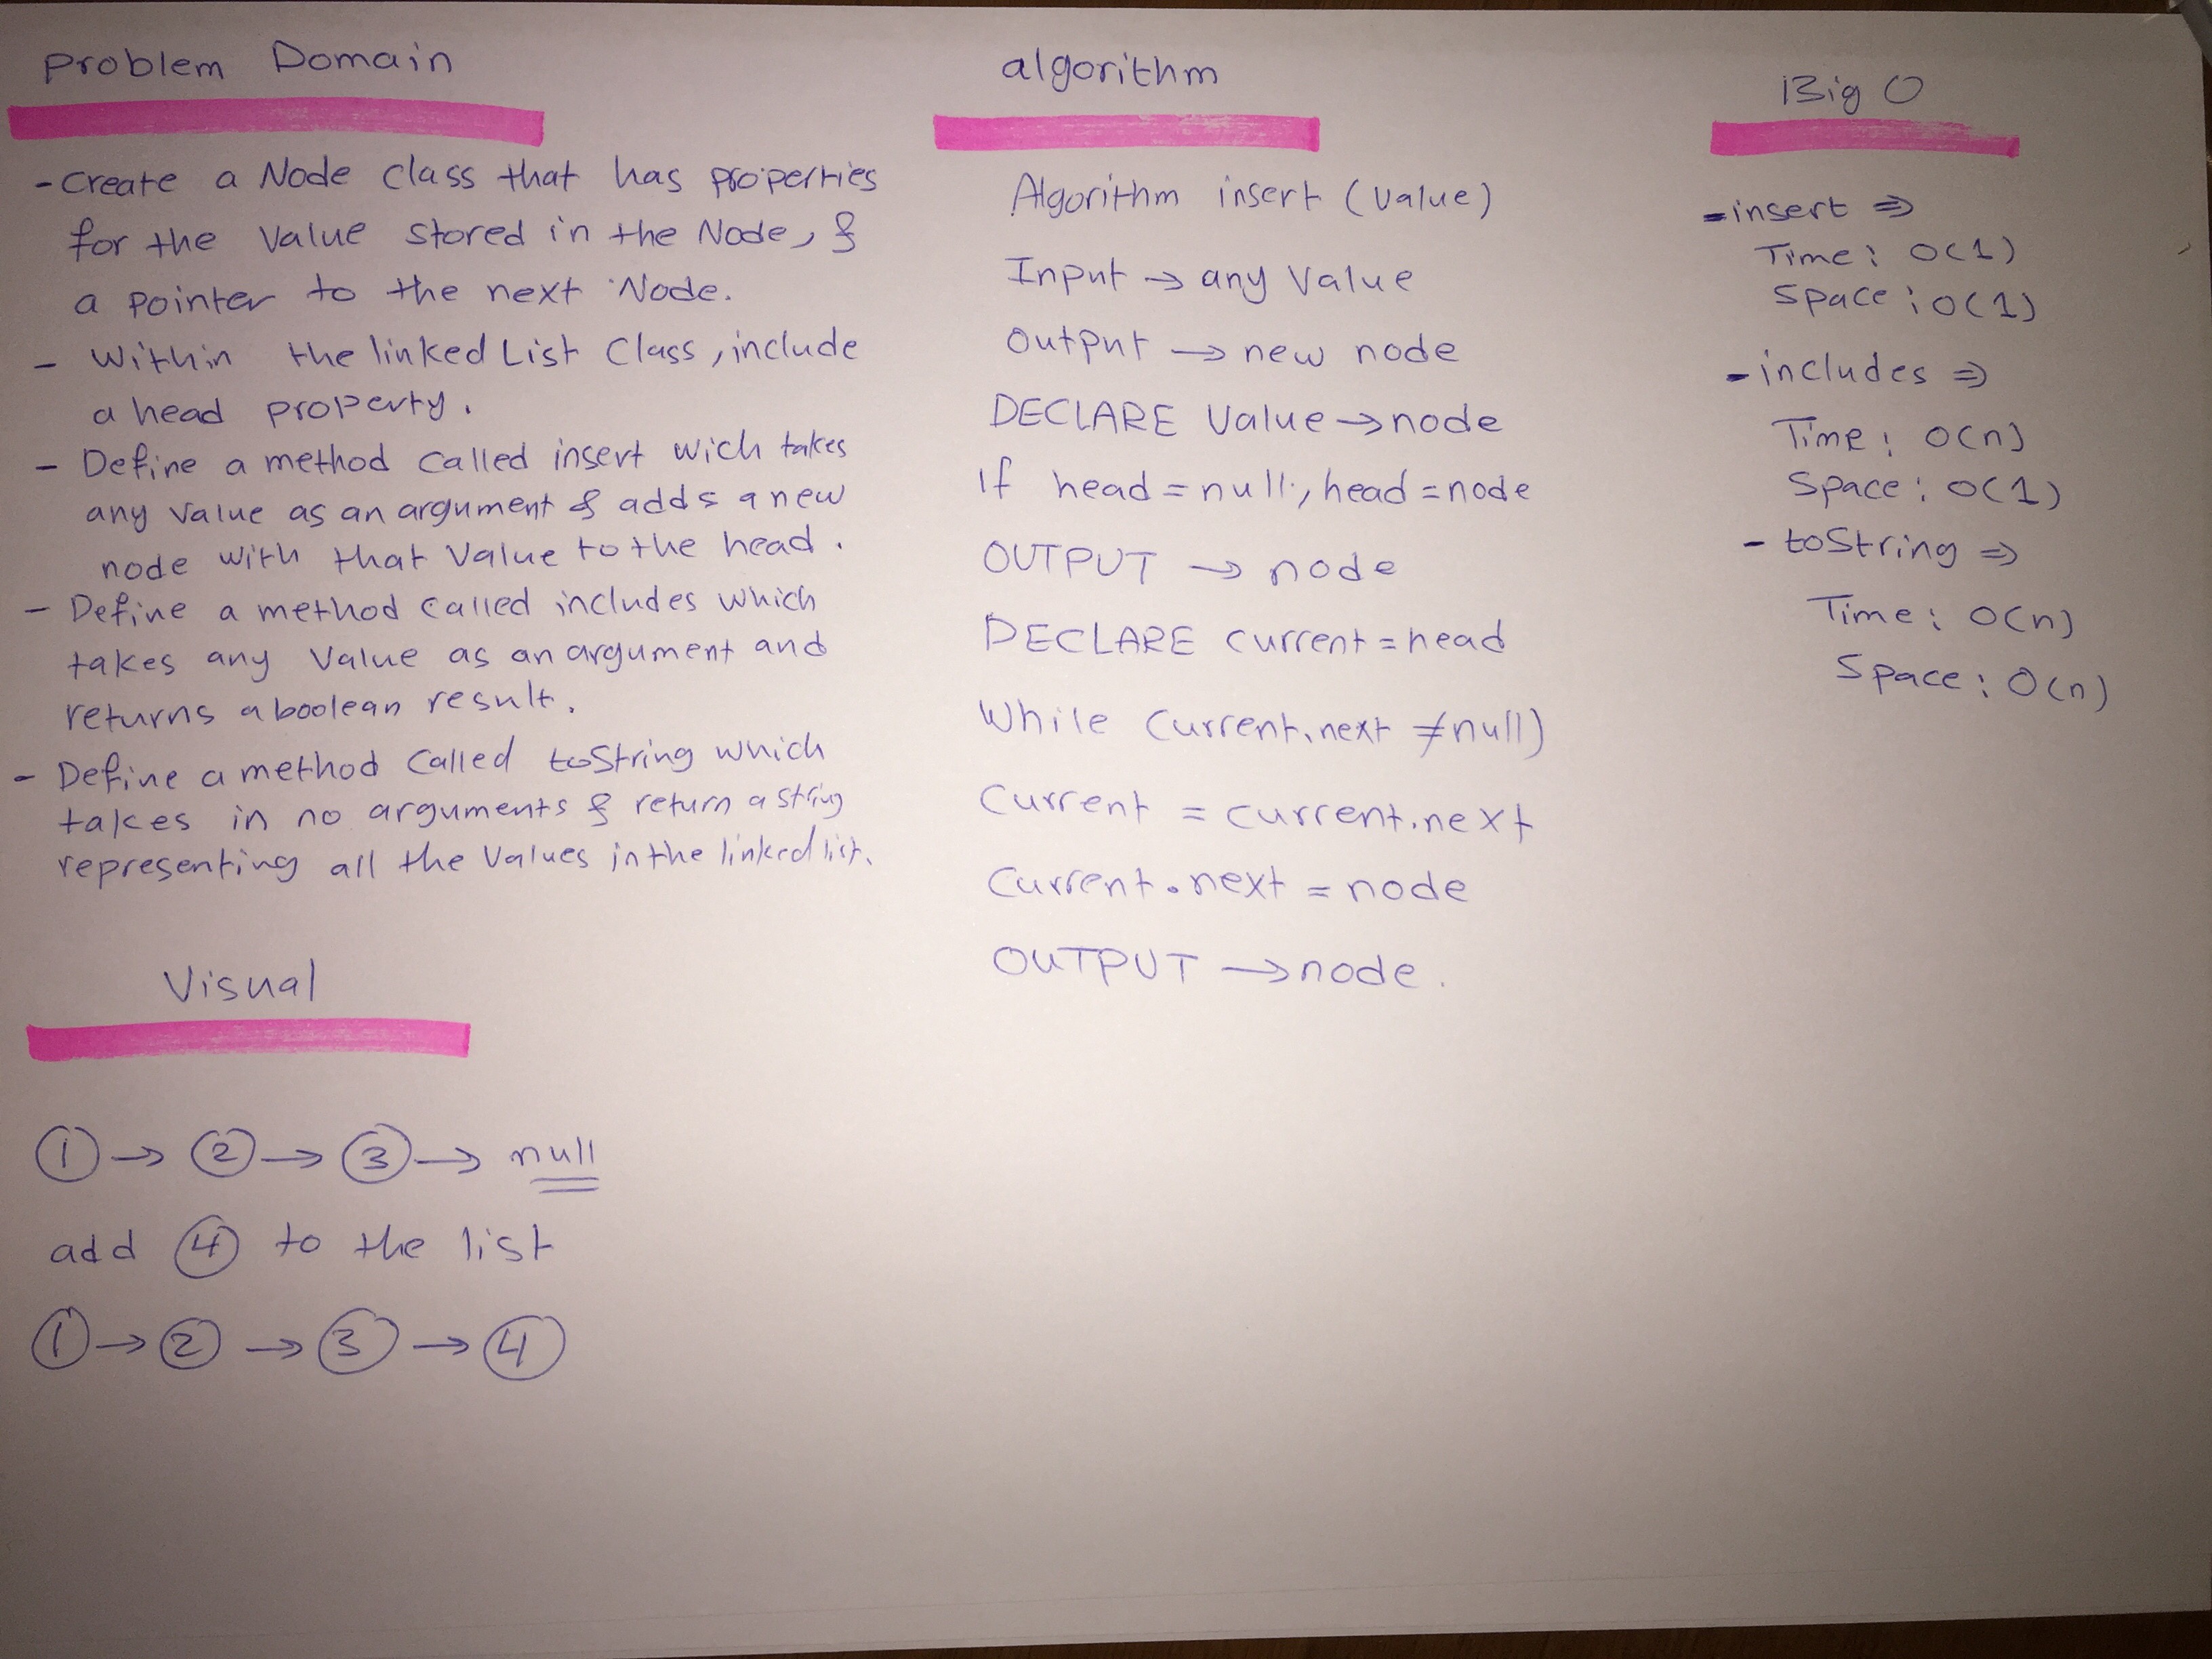 Problem Domain
- Create a Node class that has properties
for the value stored in the Node, &
a pointer to the next Node.
- within the linked List class, include
a head property.
- Define a method called insert wich takes
any value as an argument & adds a new
node with that value to the head.
- Define a method called includes which
takes any value as an argument and
returns a boolean result.
- Define a method called toString which
takes in no arguments & return a string
representing all the values in the linked list.
Visual
1 → 2 → 3 → null
add 4 to the list
1 → 2 → 3 → 4
algorithm
Algorithm insert (value)
Input → any value
output → new node
DECLARE value → node
if head = null, head = node
OUTPUT → node
DECLARE current = head
While current.next ≠ null)
current = current.next
current.next = node
OUTPUT → node.
Big O
- insert ⇒
Time: O(1)
Space: O(1)
- includes ⇒
Time: O(n)
Space: O(1)
- toString ⇒
Time: O(n)
Space: O(n)